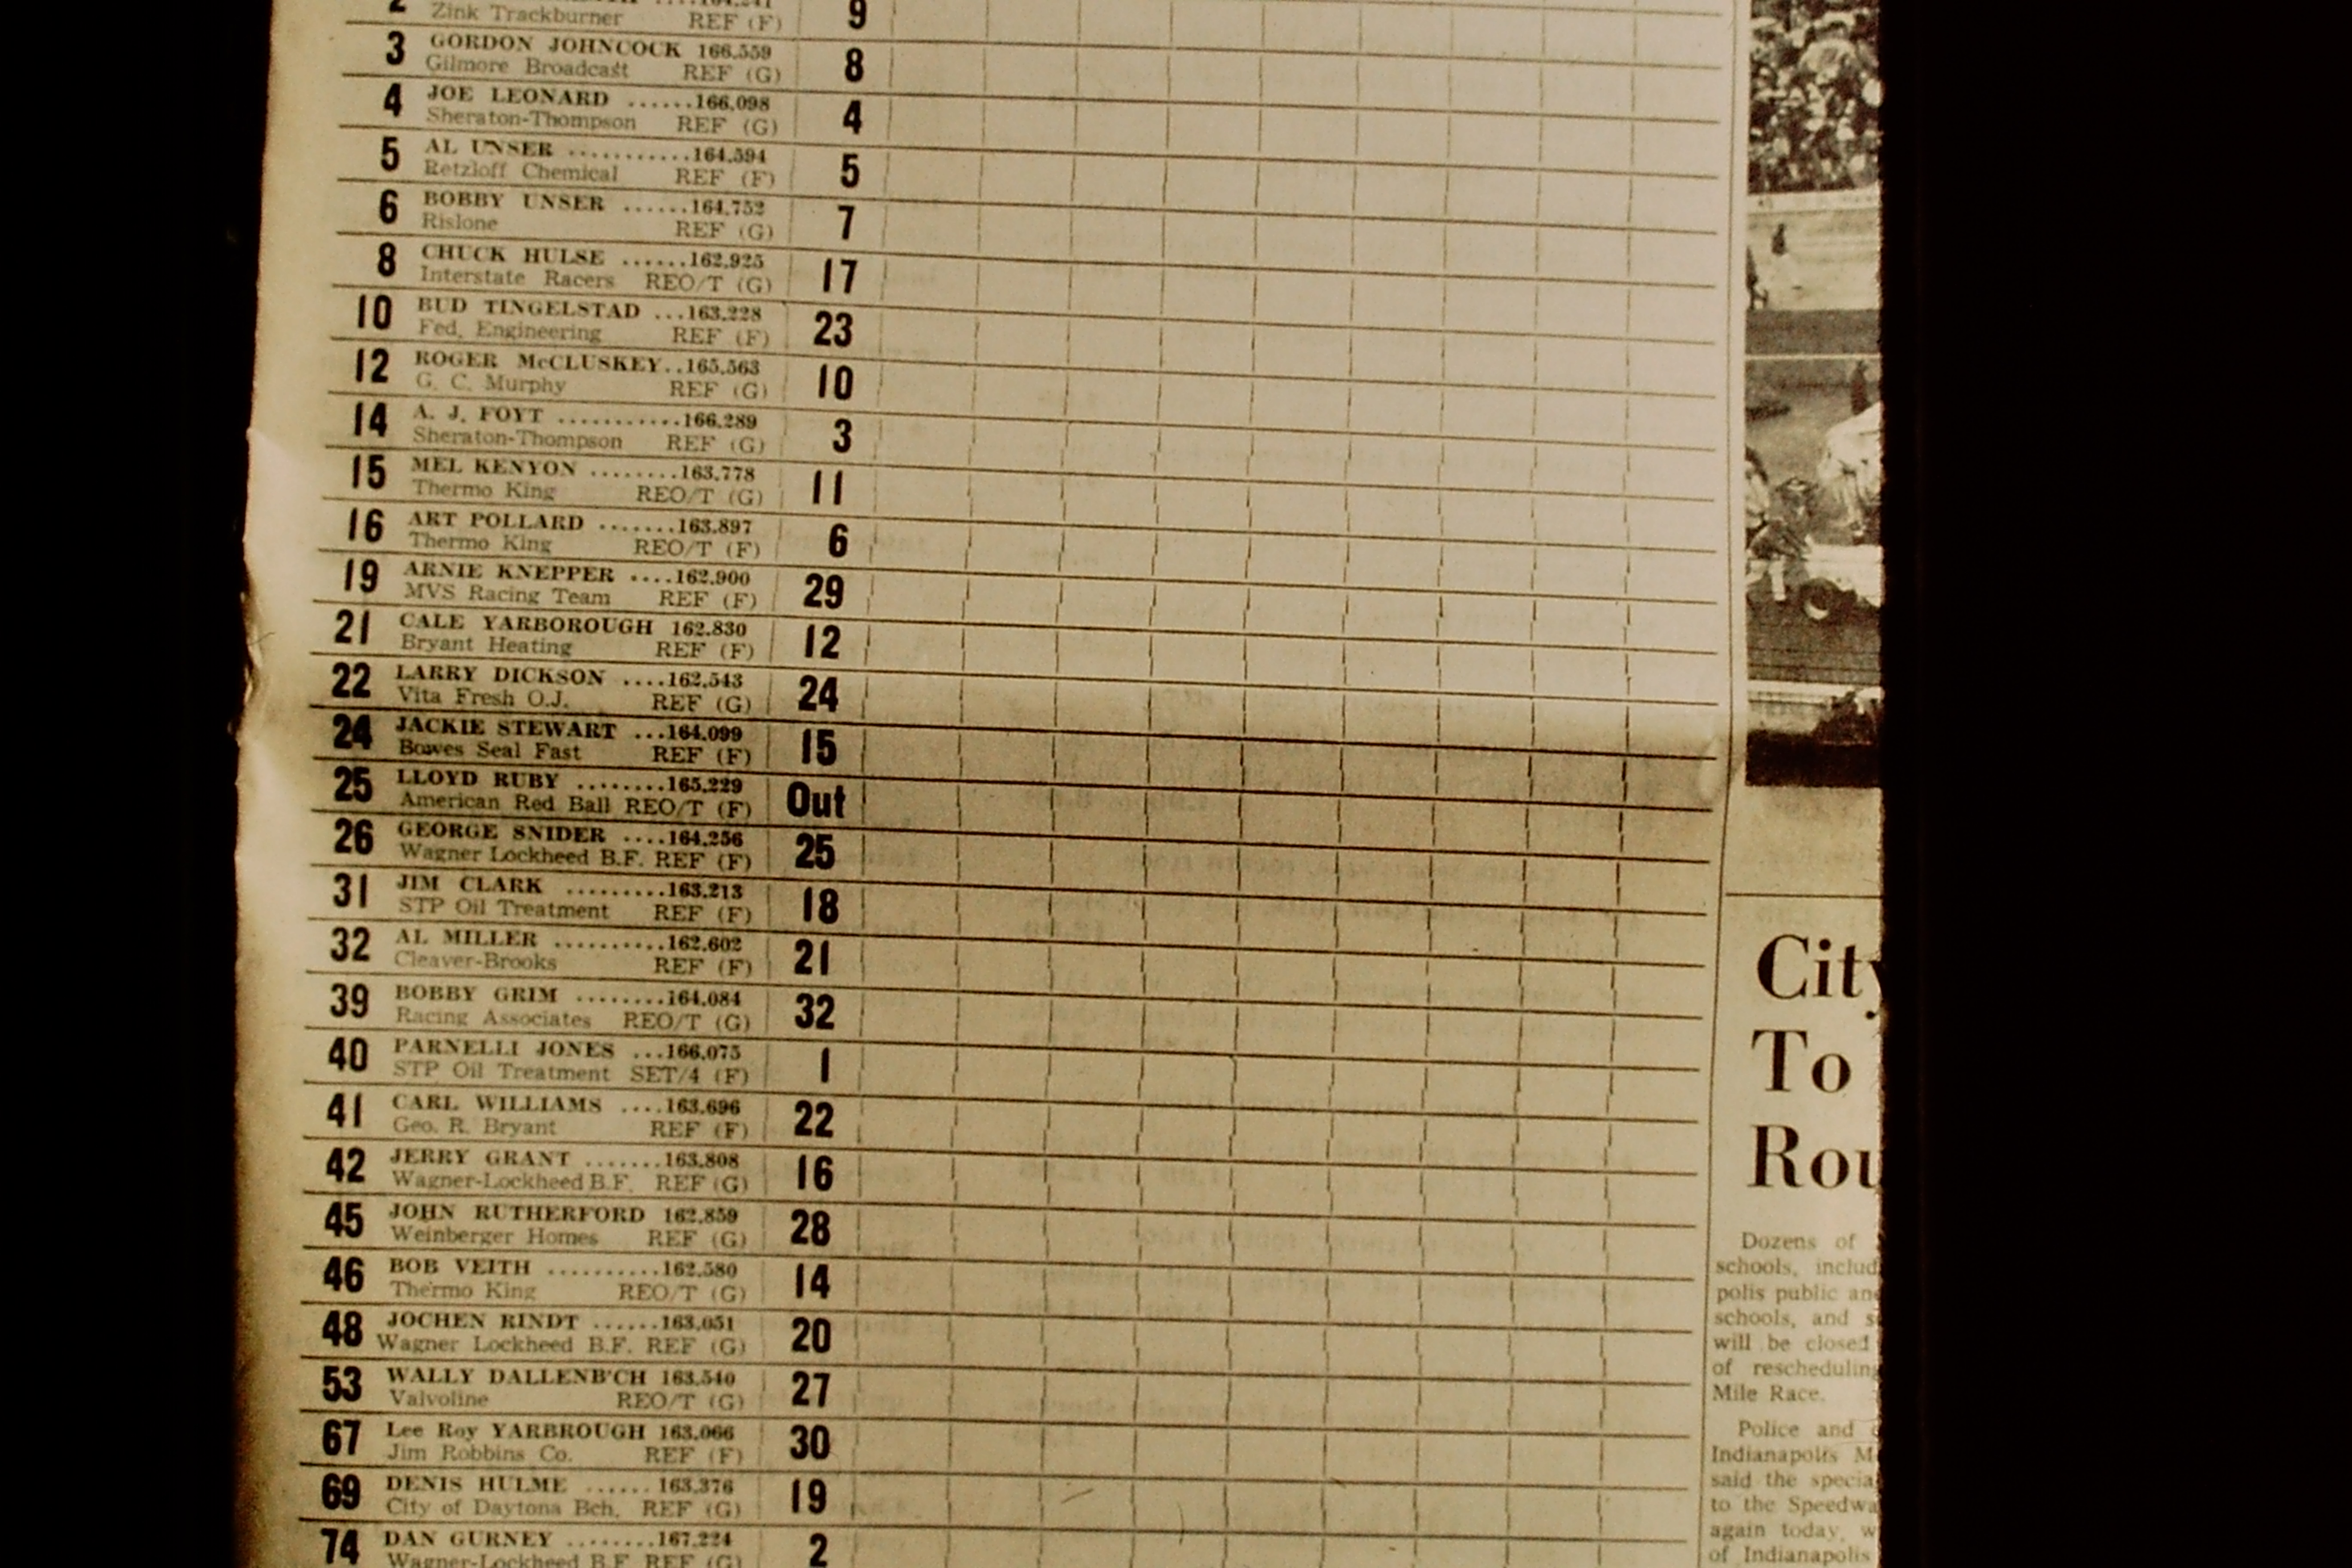 2
Zink Trackburner REF (F) 9
3 GORDON JOHNCOCK 166.559 8
Gilmore Broadcast REF (G)
4 JOE LEONARD ......166.098 4
Sheraton-Thompson REF (G)
5 AL UNSER ...........164.594 5
Retzloff Chemical REF (F)
6 BOBBY UNSER ......164.752 7
Rislone REF (G)
8 CHUCK HULSE ......162.925 17
Interstate Racers REO/T (G)
10 BUD TINGELSTAD ...163.228 23
Fed. Engineering REF (F)
12 ROGER McCLUSKEY..165.563 10
G. C. Murphy REF (G)
14 A. J. FOYT ...........166.289 3
Sheraton-Thompson REF (G)
15 MEL KENYON ........163.778 11
Thermo King REO/T (G)
16 ART POLLARD .......163.897 6
Thermo King REO/T (F)
19 ARNIE KNEPPER ....162.900 29
MVS Racing Team REF (F)
21 CALE YARBOROUGH 162.830 12
Bryant Heating REF (F)
22 LARRY DICKSON ....162.543 24
Vita Fresh O.J. REF (G)
24 JACKIE STEWART ...164.099 15
Bowes Seal Fast REF (F)
25 LLOYD RUBY ........165.229 Out
American Red Ball REO/T (F)
26 GEORGE SNIDER ....164.256 25
Wagner Lockheed B.F. REF (F)
31 JIM CLARK .........163.213 18
STP Oil Treatment REF (F)
32 AL MILLER ..........162.602 21
Cleaver-Brooks REF (F)
39 BOBBY GRIM ........164.084 32
Racing Associates REO/T (G)
40 PARNELLI JONES ...166.075 1
STP Oil Treatment SET/4 (F)
41 CARL WILLIAMS ....163.696 22
Geo. R. Bryant REF (F)
42 JERRY GRANT .......163.808 16
Wagner-Lockheed B.F. REF (G)
45 JOHN RUTHERFORD 162.859 28
Weinberger Homes REF (G)
46 BOB VEITH ..........162.580 14
Thermo King REO/T (G)
48 JOCHEN RINDT ......163.051 20
Wagner Lockheed B.F. REF (G)
53 WALLY DALLENB'CH 163.540 27
Valvoline REO/T (G)
67 Lee Roy YARBROUGH 163.066 30
Jim Robbins Co. REF (F)
69 DENIS HULME ...... 163.376 19
City of Daytona Bch. REF (G)
74 DAN GURNEY ........167.224 2
Wagner-Lockheed B.F. REF (G)
City
To
Rou
Dozens of
schools, includ
polis public and
schools, and s
will be closed
of rescheduling
Mile Race.
Police and
Indianapolis M
said the specia
to the Speedwa
again today, w
of Indianapolis